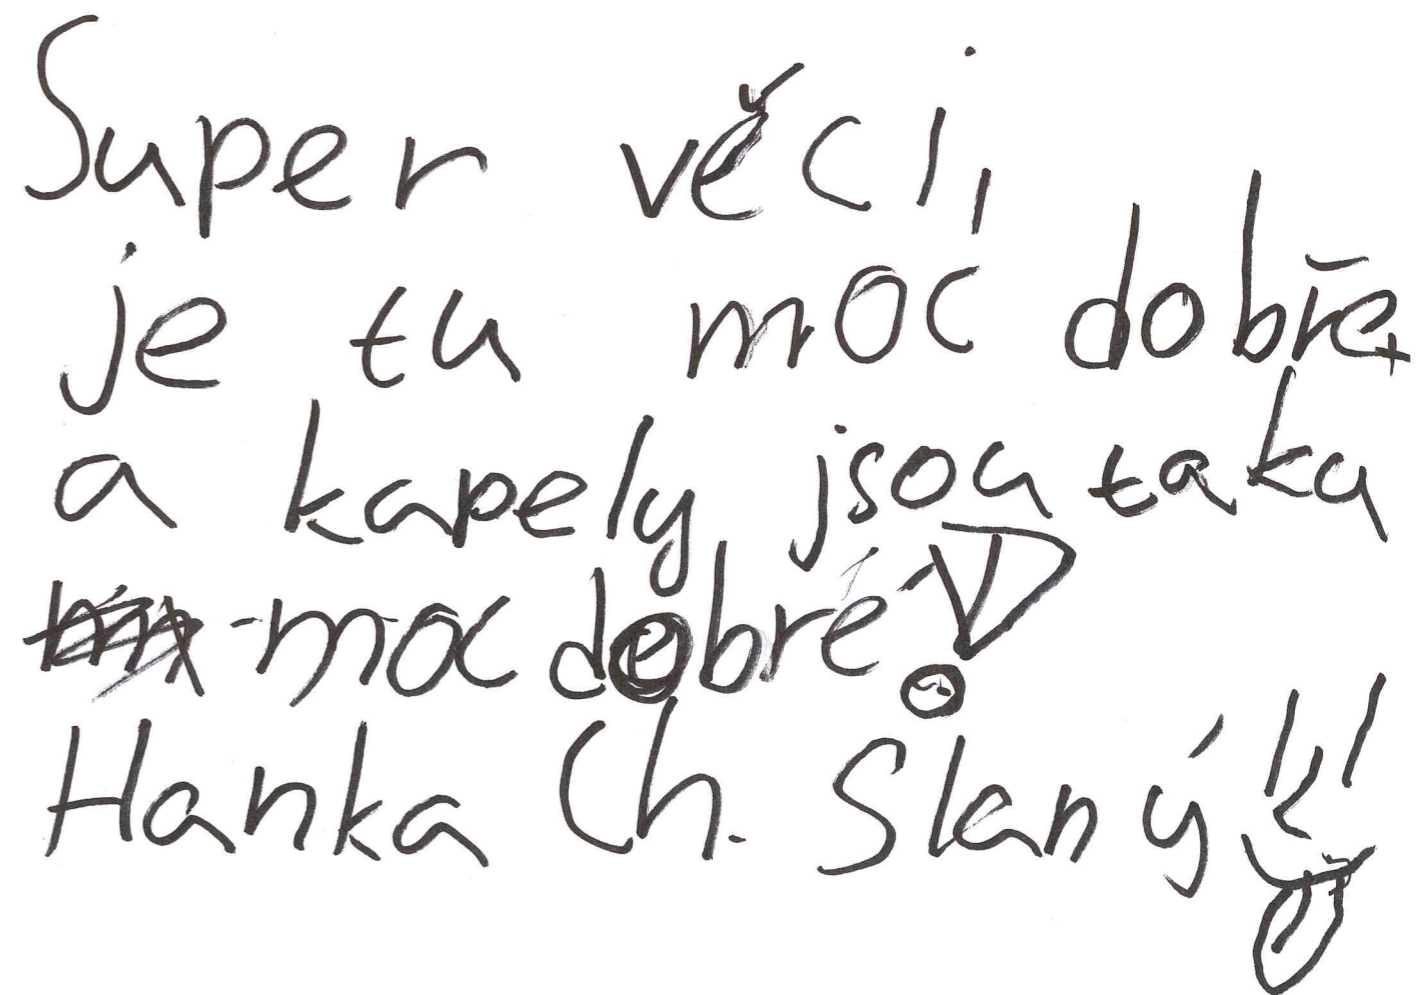 Super věci,
je tu moc dobře
a kapely jsou taky
moc dobré!
Hanka Ch. Slaný